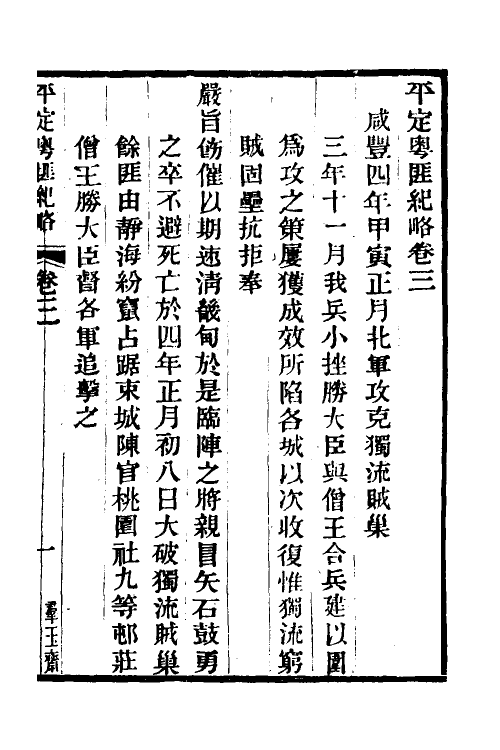 平定粵匪紀略卷三
咸豐四年甲寅正月北軍攻克獨流賊巢
三年十一月我兵小挫勝大臣與僧王合兵建以圍
爲攻之策屢獲成效所陷各城以次收復惟獨流窮
賊固壘抗拒奉
嚴旨飭催以期速淸畿甸於是臨陣之將親冒矢石鼓勇
之卒不避死亡於四年正月初八日大破獨流賊巢
餘匪由靜海紛竄占踞束城陳官桃園社九等邨莊
僧王勝大臣督各軍追擊之
平定粵匪紀略
卷三
一
羣玉齋